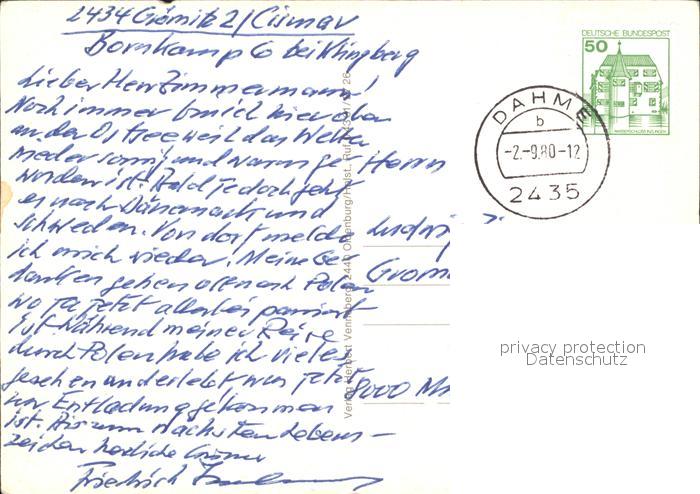 2434 Grömitz 2 / Cismar
Bornkamp 6 bei Klingberg
Lieber Herr Zimmermann!
Noch immer bin ich hier oben
an der Ostsee weil das Wetter
wieder sonnig und warm ge-
worden ist. Bald jedoch geht
es nach Dänemark und
Schweden. Von dort melde
ich mich wieder. Meine Ge-
danken gehen oft nach Polen
wo ja jetzt allerlei passiert
ist. Während meiner Reise
durch Polen habe ich vieles
gesehen und erlebt, was jetzt
zur Entladung gekommen
ist. Bis zum nächsten Lebens-
zeichen herzliche Grüsse
Friedrich
Herrn
Ludwig
8000 Mü
Verlag Herbert Venneberg, 2440 Oldenburg/Holst., Ruf
DEUTSCHE BUNDESPOST
50
WASSERSCHLOSS INZLINGEN
DAHME
b
-2.-9.80-12
2435
privacy protection
Datenschutz